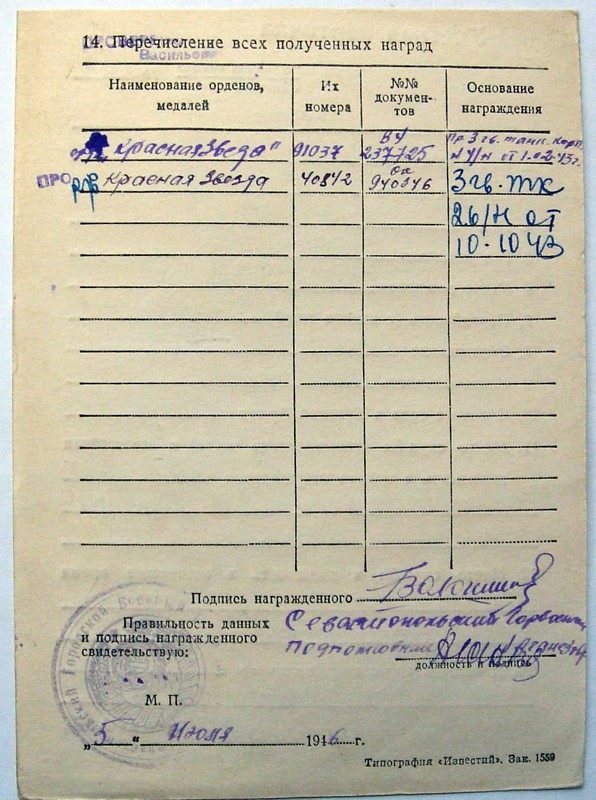 14. Перечисление всех полученных наград
Васильев
Наименование орденов, медалей
Их номера
№№ докумен-тов
Основание награждения
Красная Звезда" 91037 ВУ 237725 Пр 3 гв. танк. корп. № 4/н от 1.02.43г.
ПРО
Красная Звезда 40842 940346 3 гв. тк
26/н от
10.10 43
Подпись награжденного
Правильность данных
и подпись награжденного
свидетельствую:
Севастопольский Горвоен
Подполковник
должность и подпись
М. П.
„5" Июля 1946 г.
Типография «Известий». Зак. 1559